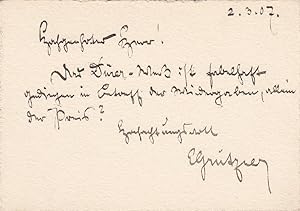 2.3.07.
Hochgeehrter Herr!
Das Dürer-Werk ist fabelhaft
gediegen in Betreff der Wiedergaben, allein
der Preis?
Hochachtungsvoll
EGrützner